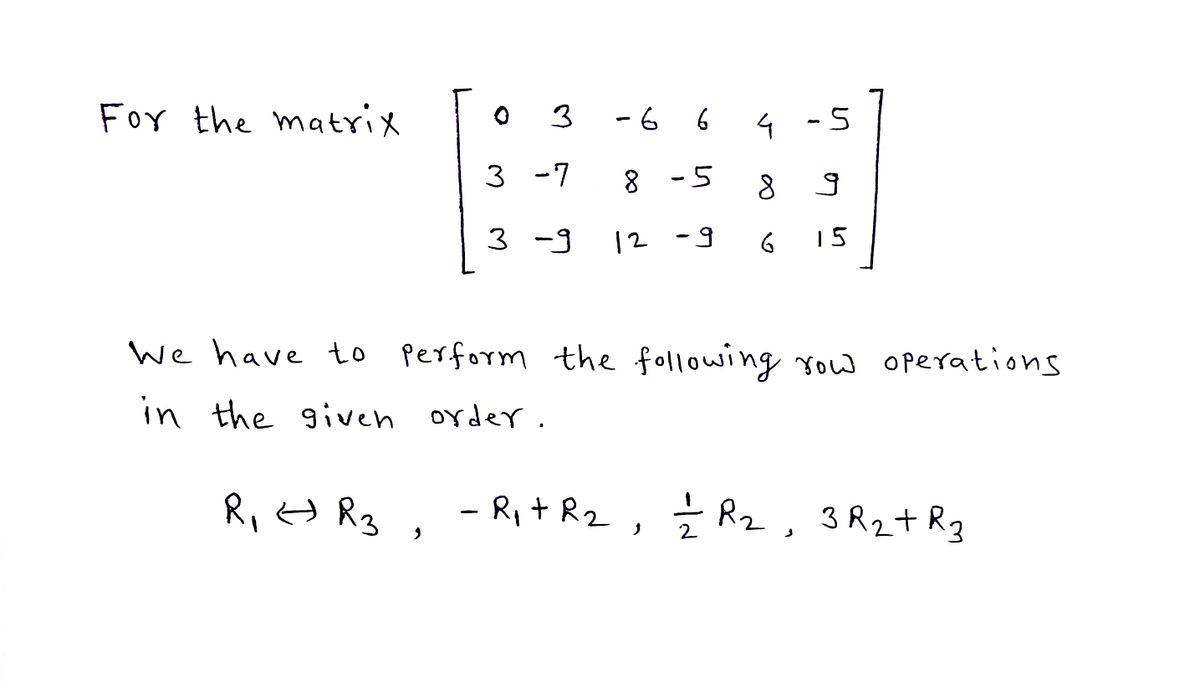 For the matrix [ 0 3 -6 6 4 -5
3 -7 8 -5 8 9
3 -9 12 -9 6 15 ]
We have to perform the following row operations
in the given order.
R₁ ↔ R₃ , - R₁ + R₂ , 1/2 R₂ , 3 R₂ + R₃